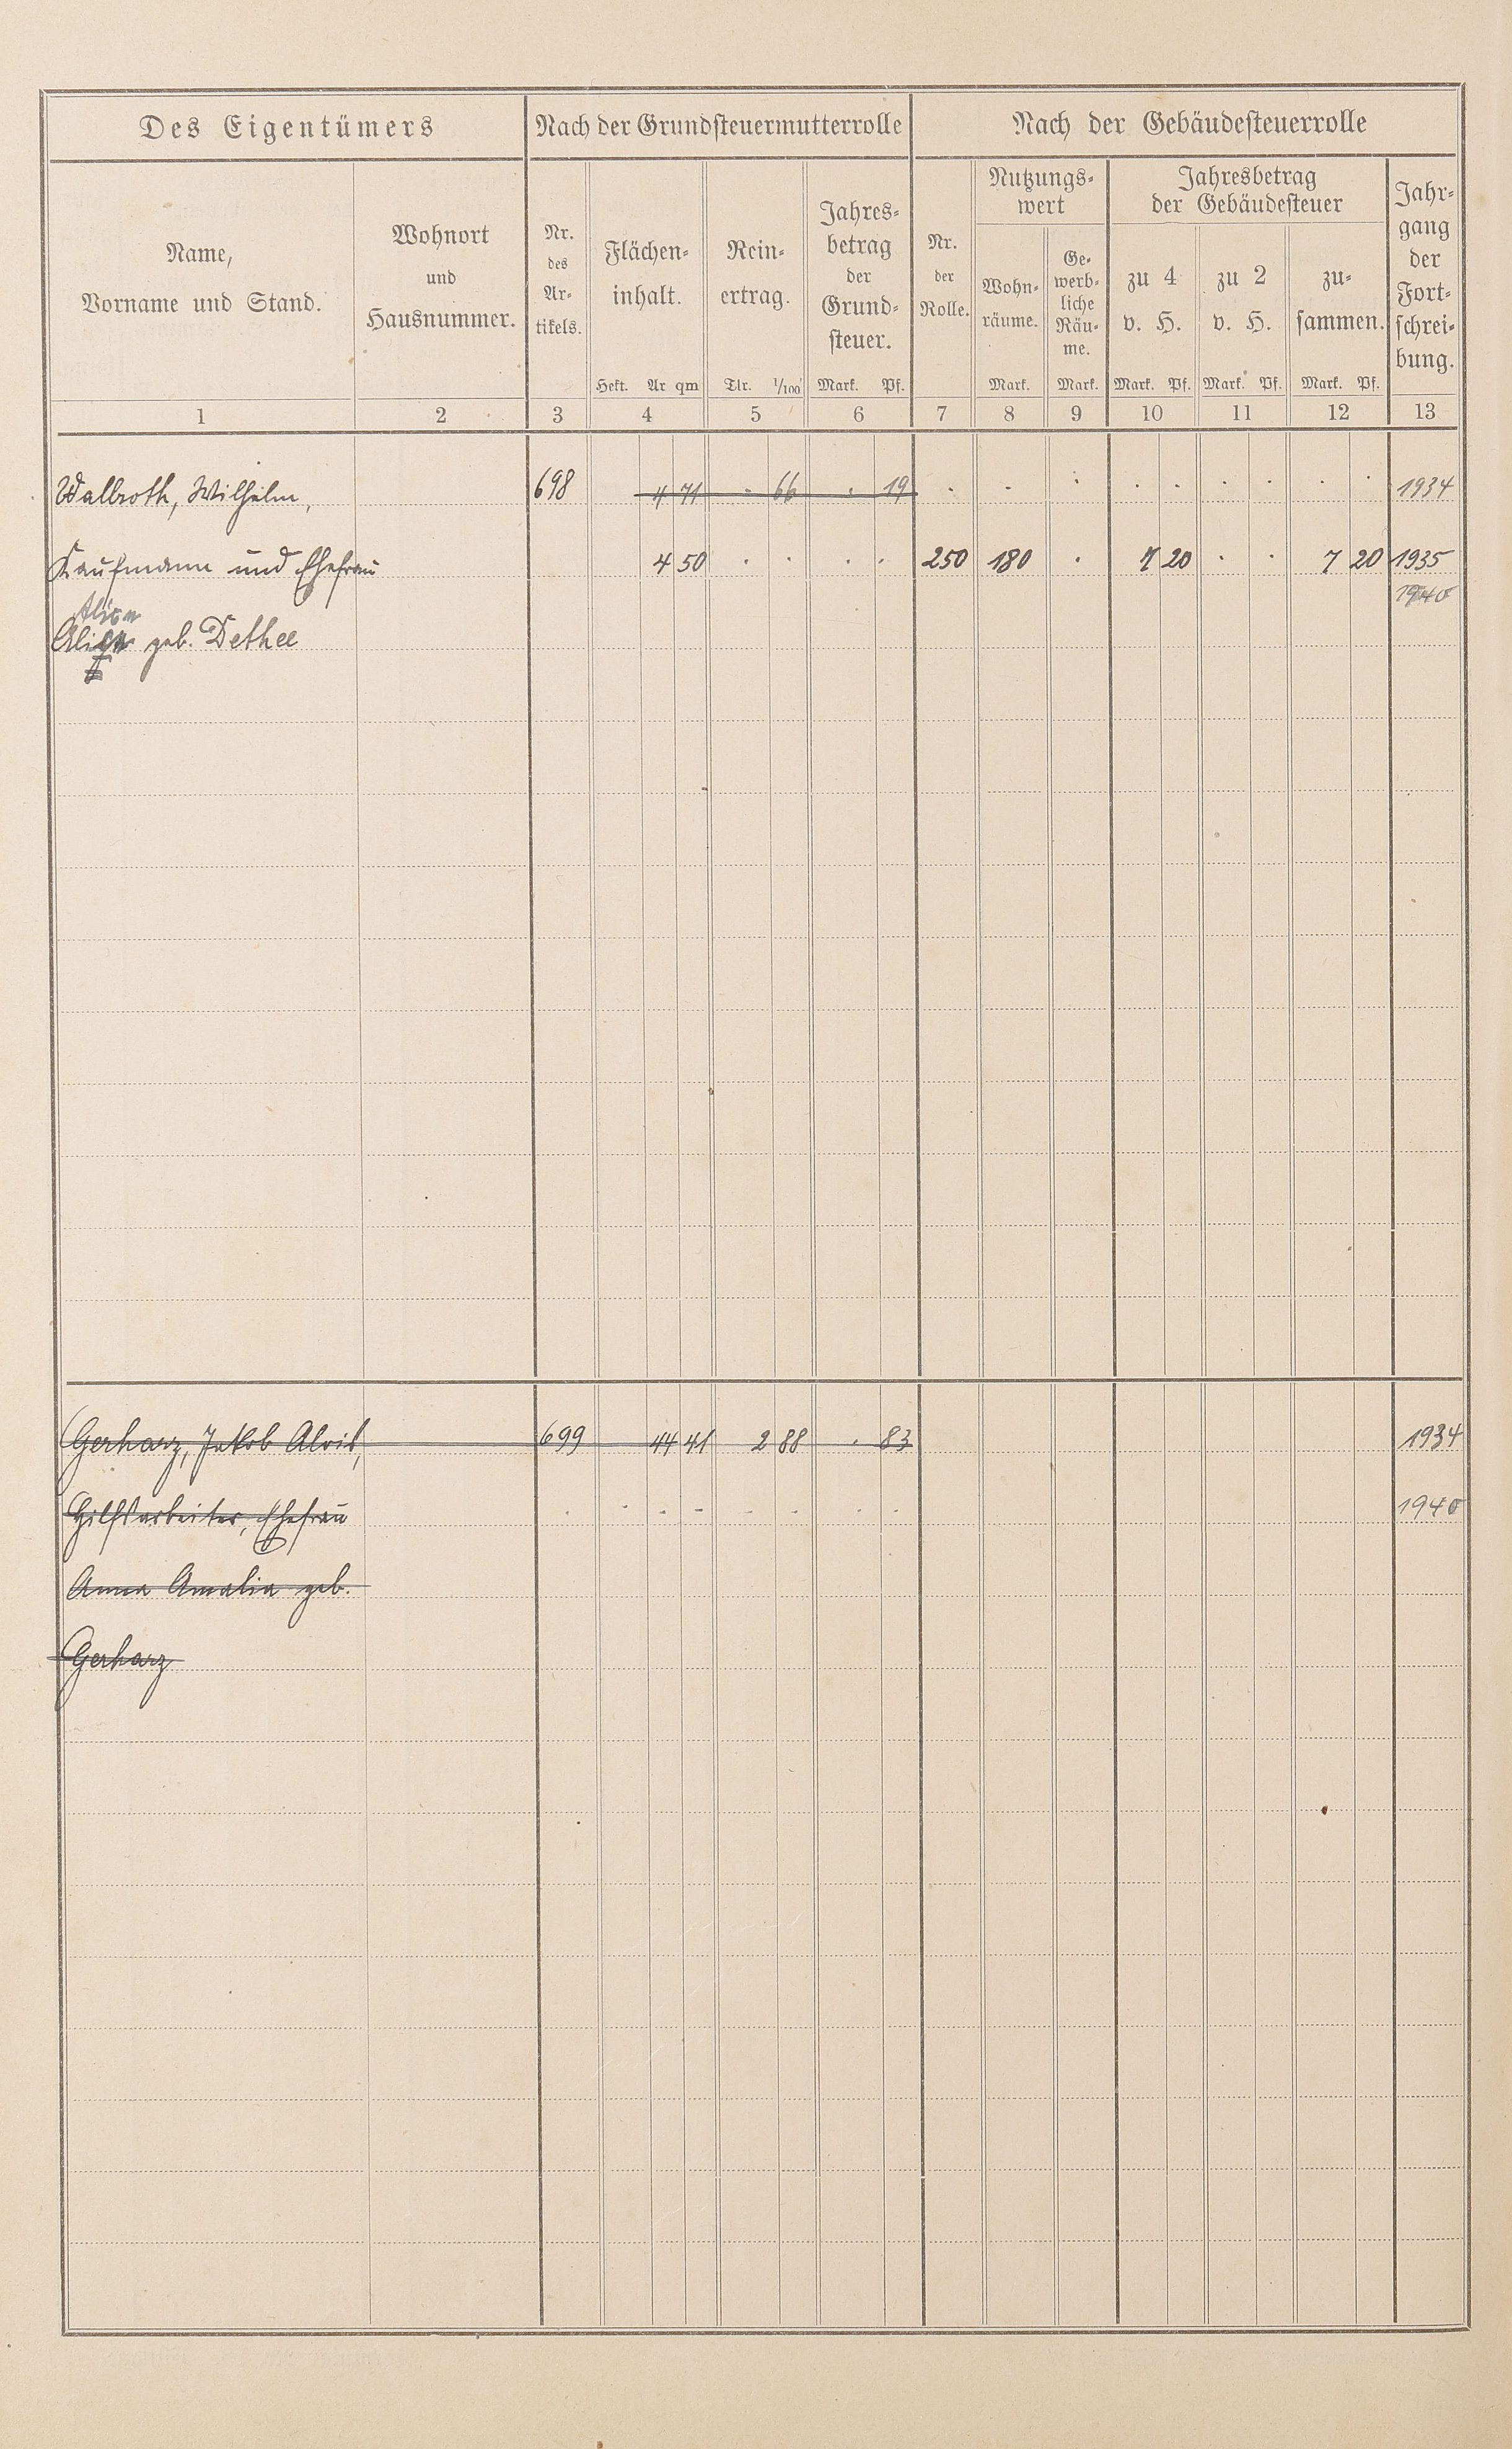 Des Eigentümers Nach der Grundsteuermutterrolle Nach der Gebäudesteuerrolle
Name,
Vorname und Stand.
Wohnort
und
Hausnummer.
Nr.
des
Ar-
tikels.
Flächen-
inhalt.
Hekt. Ar qm
Rein-
ertrag.
Tlr. 1/100
Jahres-
betrag
der
Grund-
steuer.
Mark. Pf.
Nr.
der
Rolle.
Nutzungs-
wert
Wohn-
räume.
Mark.
Ge-
werb-
liche
Räu-
me.
Mark.
Jahresbetrag
der Gebäudesteuer
zu 4
v. H.
Mark. Pf.
zu 2
v. H.
Mark. Pf.
zu-
sammen.
Mark. Pf.
Jahr-
gang
der
Fort-
schrei-
bung.
1 2 3 4 5 6 7 8 9 10 11 12 13
Walbroth, Wilhelm, 698 4 71 . 66 . 19 . . . . . . . . . 1934
Kaufmann und Ehefrau 4 50 . . . . 250 180 . 7 20 . . 7 20 1935
1940
geb. Dethee
Gerharz, Jakob Alois, 699 44 41 2 88 . 83 1934
Hilfsarbeiter, Ehefrau . . . . . . . 1940
Anna Amalia geb.
Gerharz